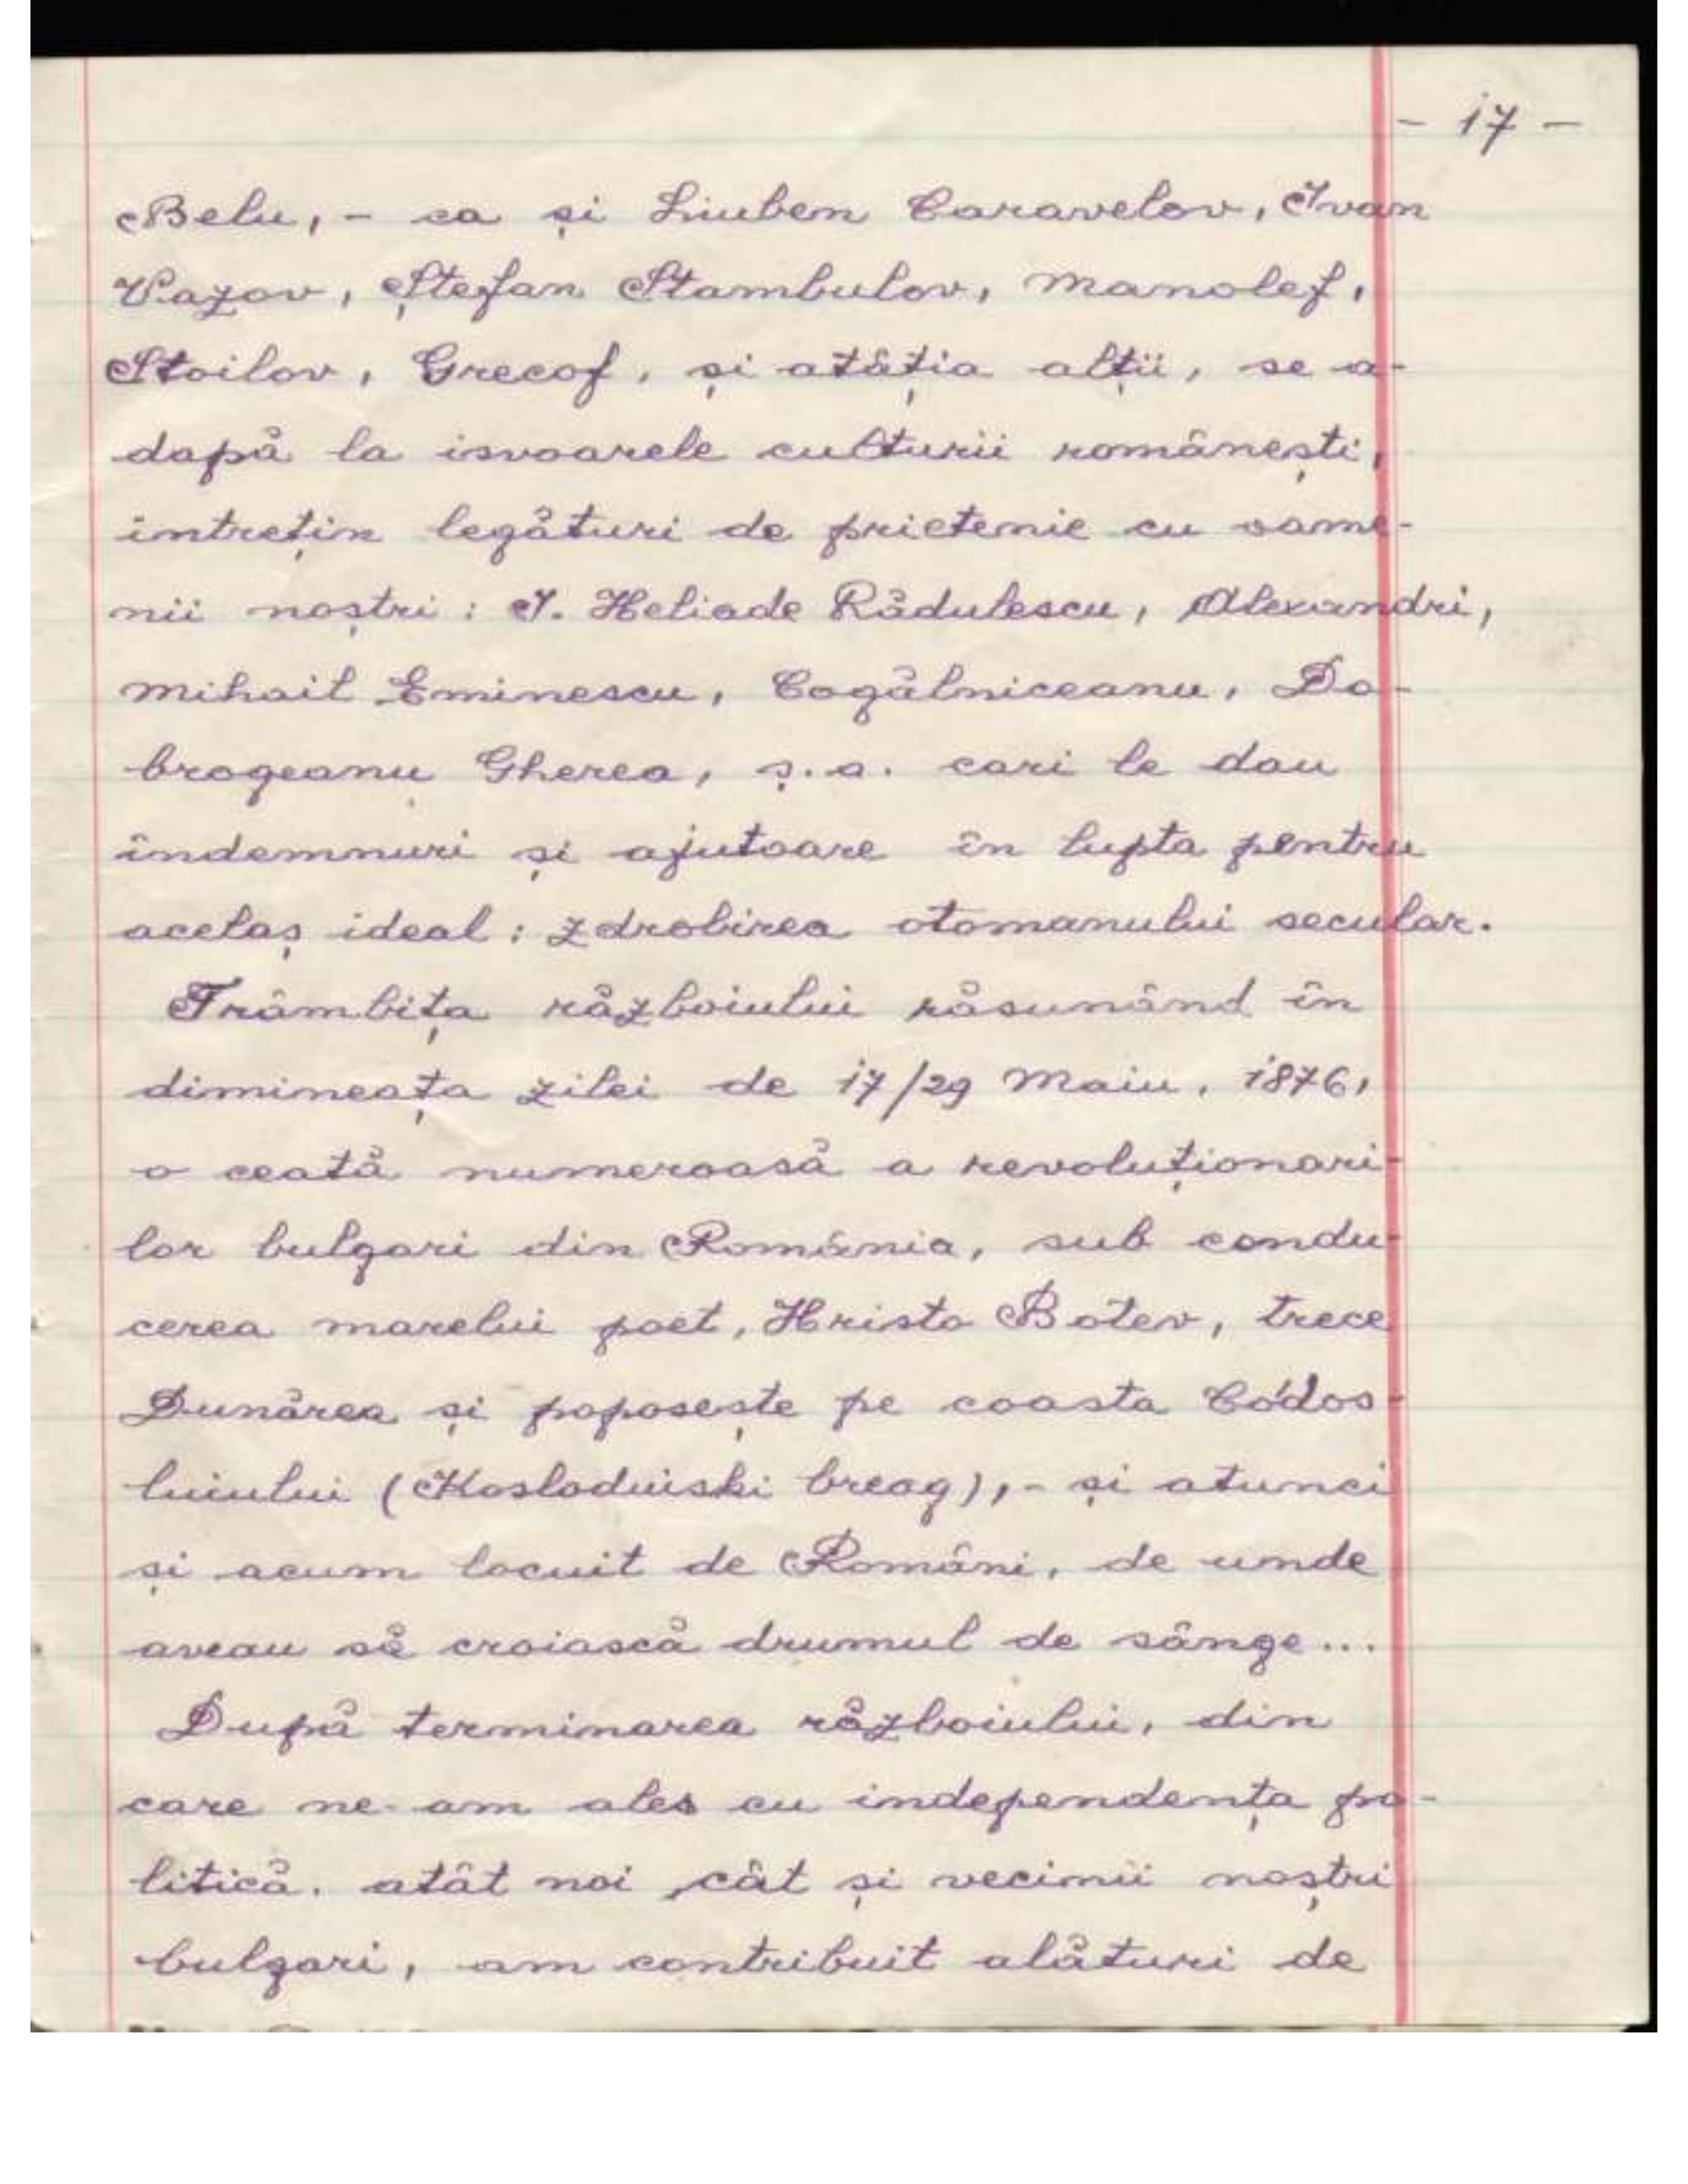 - 17 -
Belu, - ca și Liuben Caravelov, Ivan
Vazov, Ștefan Stambulov, Manolef,
Stoilov, Grecof, și atâția alții, se a-
dapă la isvoarele culturii românești,
intrețin legături de prietenie cu oame-
nii noștri: I. Heliade Rădulescu, Alexandri,
Mihail Eminescu, Cogălniceanu, Do-
brogeanu Gherea, ș.a. cari le dau
îndemnuri și ajutoare în lupta pentru
acelaș ideal: zdrobirea otomanului secular.
Trâmbița războiului răsunând în
dimineața zilei de 17/29 Maiu, 1876,
o ceată numeroasă a revoluționari-
lor bulgari din România, sub condu-
cerea marelui poet, Hristo Botev, trece
Dunărea și poposește pe coasta Códos-
luiului (Kosloduiski breag), - și atunci
și acum locuit de Români, de unde
aveau să croiască drumul de sânge...
După terminarea războiului, din
care ne-am ales cu independența po-
litică, atât noi, cât și vecinii noștri
bulgari, am contribuit alături de